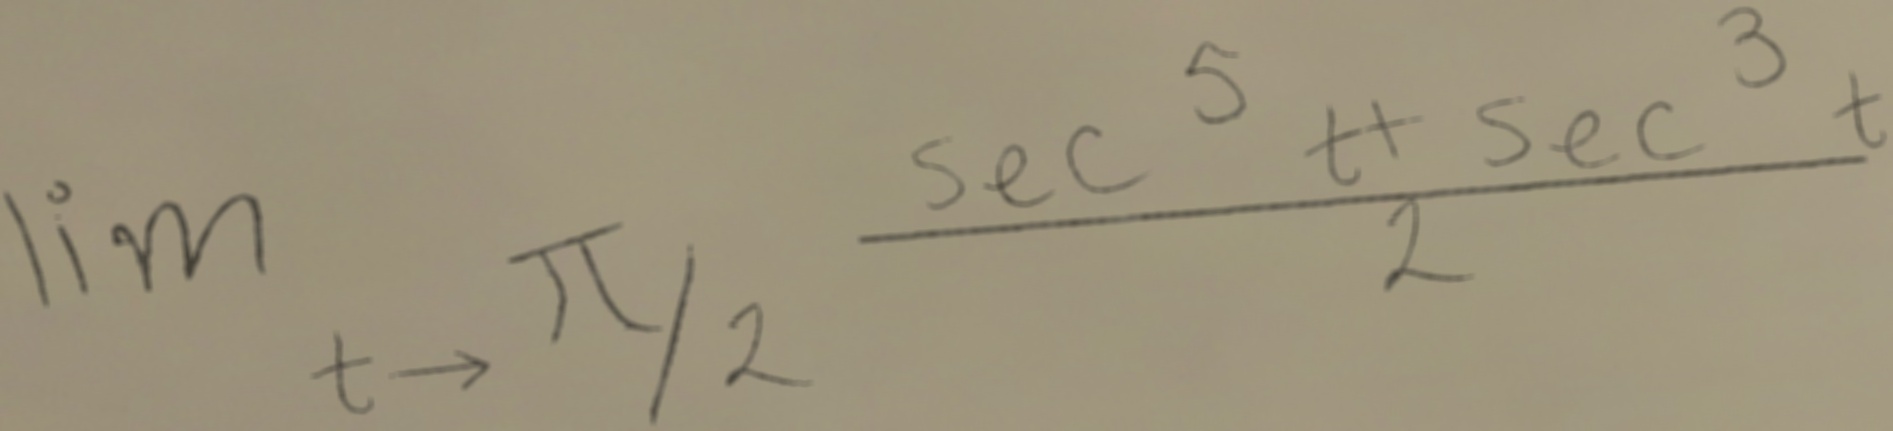 lim t→π/2 (sec^5 t + sec^3 t)/2